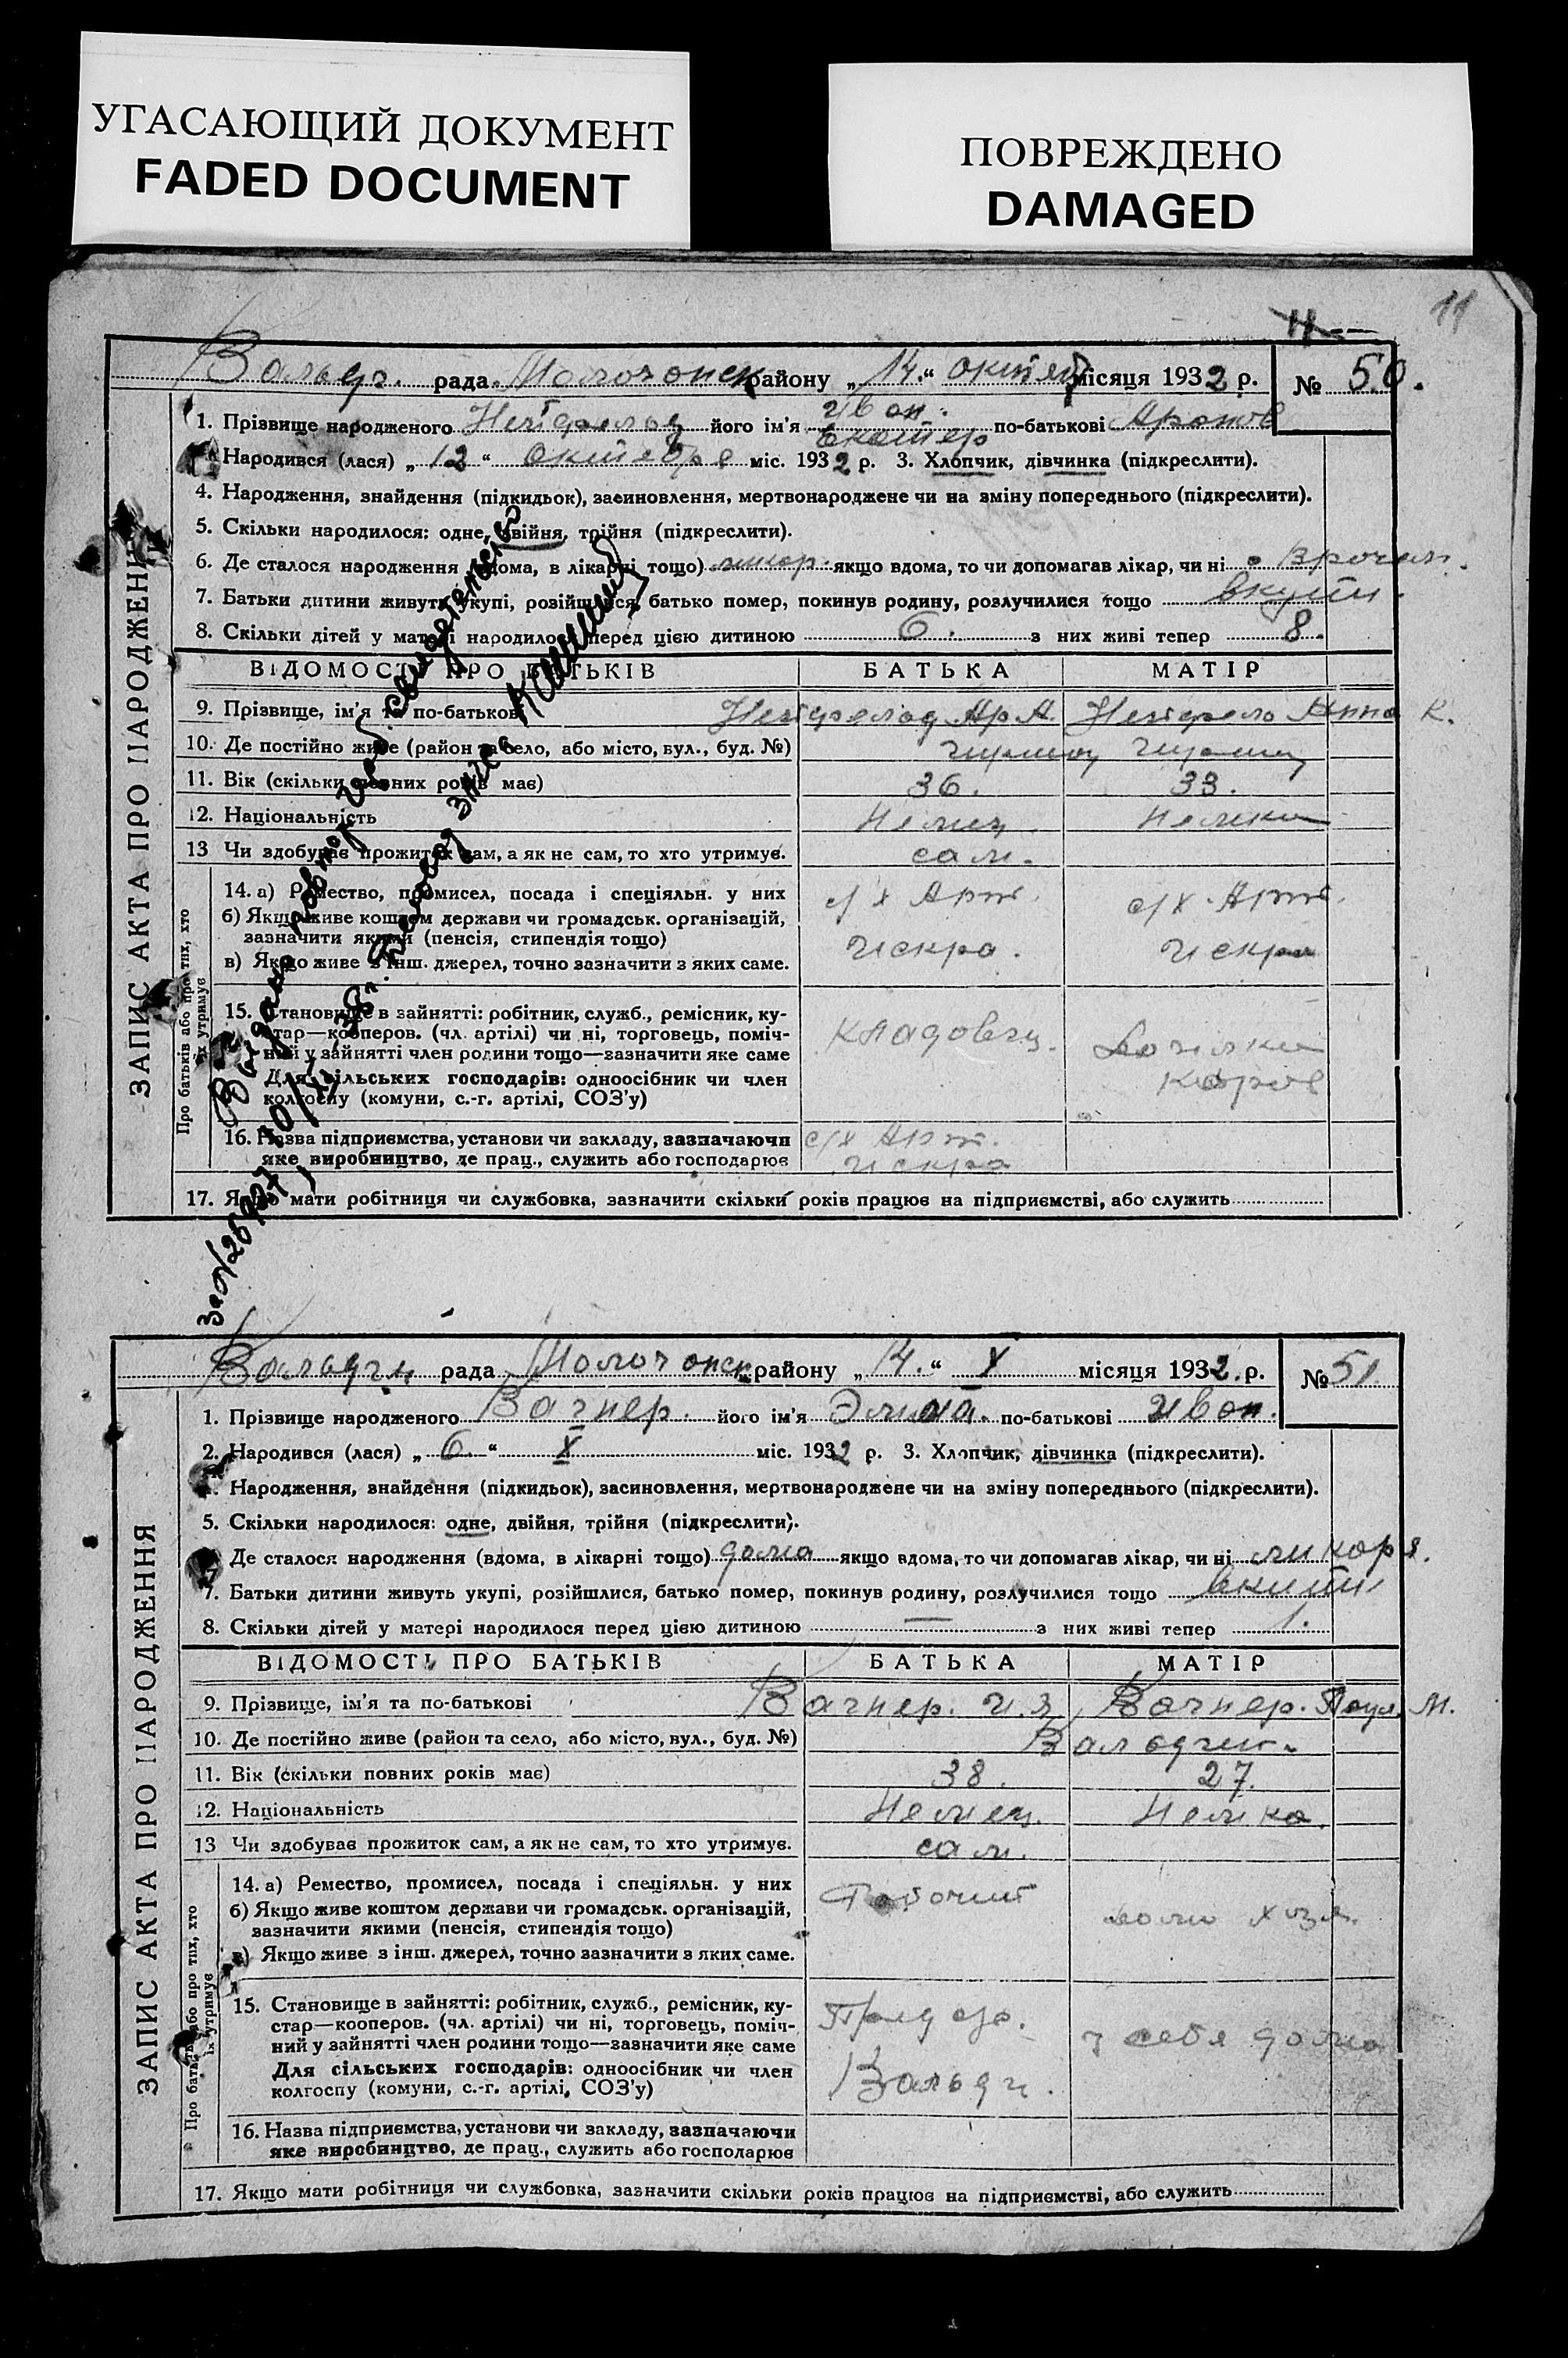 УГАСАЮЩИЙ ДОКУМЕНТ
FADED DOCUMENT
ПОВРЕЖДЕНО
DAMAGED
11
11
ЗАПИС АКТА ПРО НАРОДЖЕННЯ
Вальдг. рада Молочонск району „14.“ октяб місяця 1932 р. № 50.
Иван.
1. Прізвище народженого його ім'я по-батькові Аронов
2. Народився (лася) „12“ октября міс. 1932 р. 3. Хлопчик, дівчинка (підкреслити).
4. Народження, знайдення (підкидьок), засиновлення, мертвонароджене чи на зміну попереднього (підкреслити).
5. Скільки народилося: одне, двійня, трійня (підкреслити).
6. Де сталося народження (вдома, в лікарні тощо) якщо вдома, то чи допомагав лікар, чи ні
7. Батьки дитини живуть укупі, розійшлися, батько помер, покинув родину, розлучилися тощо вкупи.
8. Скільки дітей у матері народилося перед цією дитиною 6. з них живі тепер 8.
ВІДОМОСТІ ПРО БАТЬКІВ БАТЬКА МАТІР
9. Прізвище, ім'я та по-батькові Анна К.
10. Де постійно живе (район та село, або місто, вул., буд. №)
11. Вік (скільки повних років має) 36. 33.
12. Національність Немец Немка
13 Чи здобуває прожиток сам, а як не сам, то хто утримує. сам.
Про батьків або про тих, хто їх утримує
14. а) Ремество, промисел, посада і спеціяльн. у них с/х Арт. с/х. Арт.
б) Якщо живе коштом держави чи громадськ. організацій,
зазначити якими (пенсія, стипендія тощо) Искра. Искра
в) Якщо живе з інш. джерел, точно зазначити з яких саме.
15. Становище в зайнятті: робітник, служб., ремісник, ку-
стар—кооперов. (чл. артілі) чи ні, торговець, поміч- Кладовщ.
ний у зайнятті член родини тощо—зазначити яке саме
Для сільських господарів: одноосібник чи член коров
колгоспу (комуни, с.-г. артілі, СОЗ'у)
16. Назва підприємства, установи чи закладу, зазначаючи с/х Арт.
яке виробництво, де прац., служить або господарює Искра
17. Якщо мати робітниця чи службовка, зазначити скільки років працює на підприємстві, або служить
Выдано повтор свидетельство
ЗАПИС АКТА ПРО НАРОДЖЕННЯ
Вальдги рада Молочонск району „14.“ X місяця 1932. р. № 51
1. Прізвище народженого Вагнер. його ім'я по-батькові Иван.
2. Народився (лася) „6.“ X міс. 1932 р. 3. Хлопчик, дівчинка (підкреслити).
4. Народження, знайдення (підкидьок), засиновлення, мертвонароджене чи на зміну попереднього (підкреслити).
5. Скільки народилося: одне, двійня, трійня (підкреслити).
6. Де сталося народження (вдома, в лікарні тощо) дома якщо вдома, то чи допомагав лікар, чи ні
7. Батьки дитини живуть укупі, розійшлися, батько помер, покинув родину, розлучилися тощо вкупи
8. Скільки дітей у матері народилося перед цією дитиною — з них живі тепер 1.
ВІДОМОСТІ ПРО БАТЬКІВ БАТЬКА МАТІР
9. Прізвище, ім'я та по-батькові Вагнер. Вагнер. М.
10. Де постійно живе (район та село, або місто, вул., буд. №)
11. Вік (скільки повних років має) 38. 27.
12. Національність Немец. Немка.
13 Чи здобуває прожиток сам, а як не сам, то хто утримує. сам.
Про батьків або про тих, хто їх утримує
14. а) Ремество, промисел, посада і спеціяльн. у них Рабочий
б) Якщо живе коштом держави чи громадськ. організацій,
зазначити якими (пенсія, стипендія тощо)
в) Якщо живе з інш. джерел, точно зазначити з яких саме.
15. Становище в зайнятті: робітник, служб., ремісник, ку-
стар—кооперов. (чл. артілі) чи ні, торговець, поміч-
ний у зайнятті член родини тощо—зазначити яке саме у себя дома
Для сільських господарів: одноосібник чи член
колгоспу (комуни, с.-г. артілі, СОЗ'у) Вальдг.
16. Назва підприємства, установи чи закладу, зазначаючи
яке виробництво, де прац., служить або господарює
17. Якщо мати робітниця чи службовка, зазначити скільки років працює на підприємстві, або служить